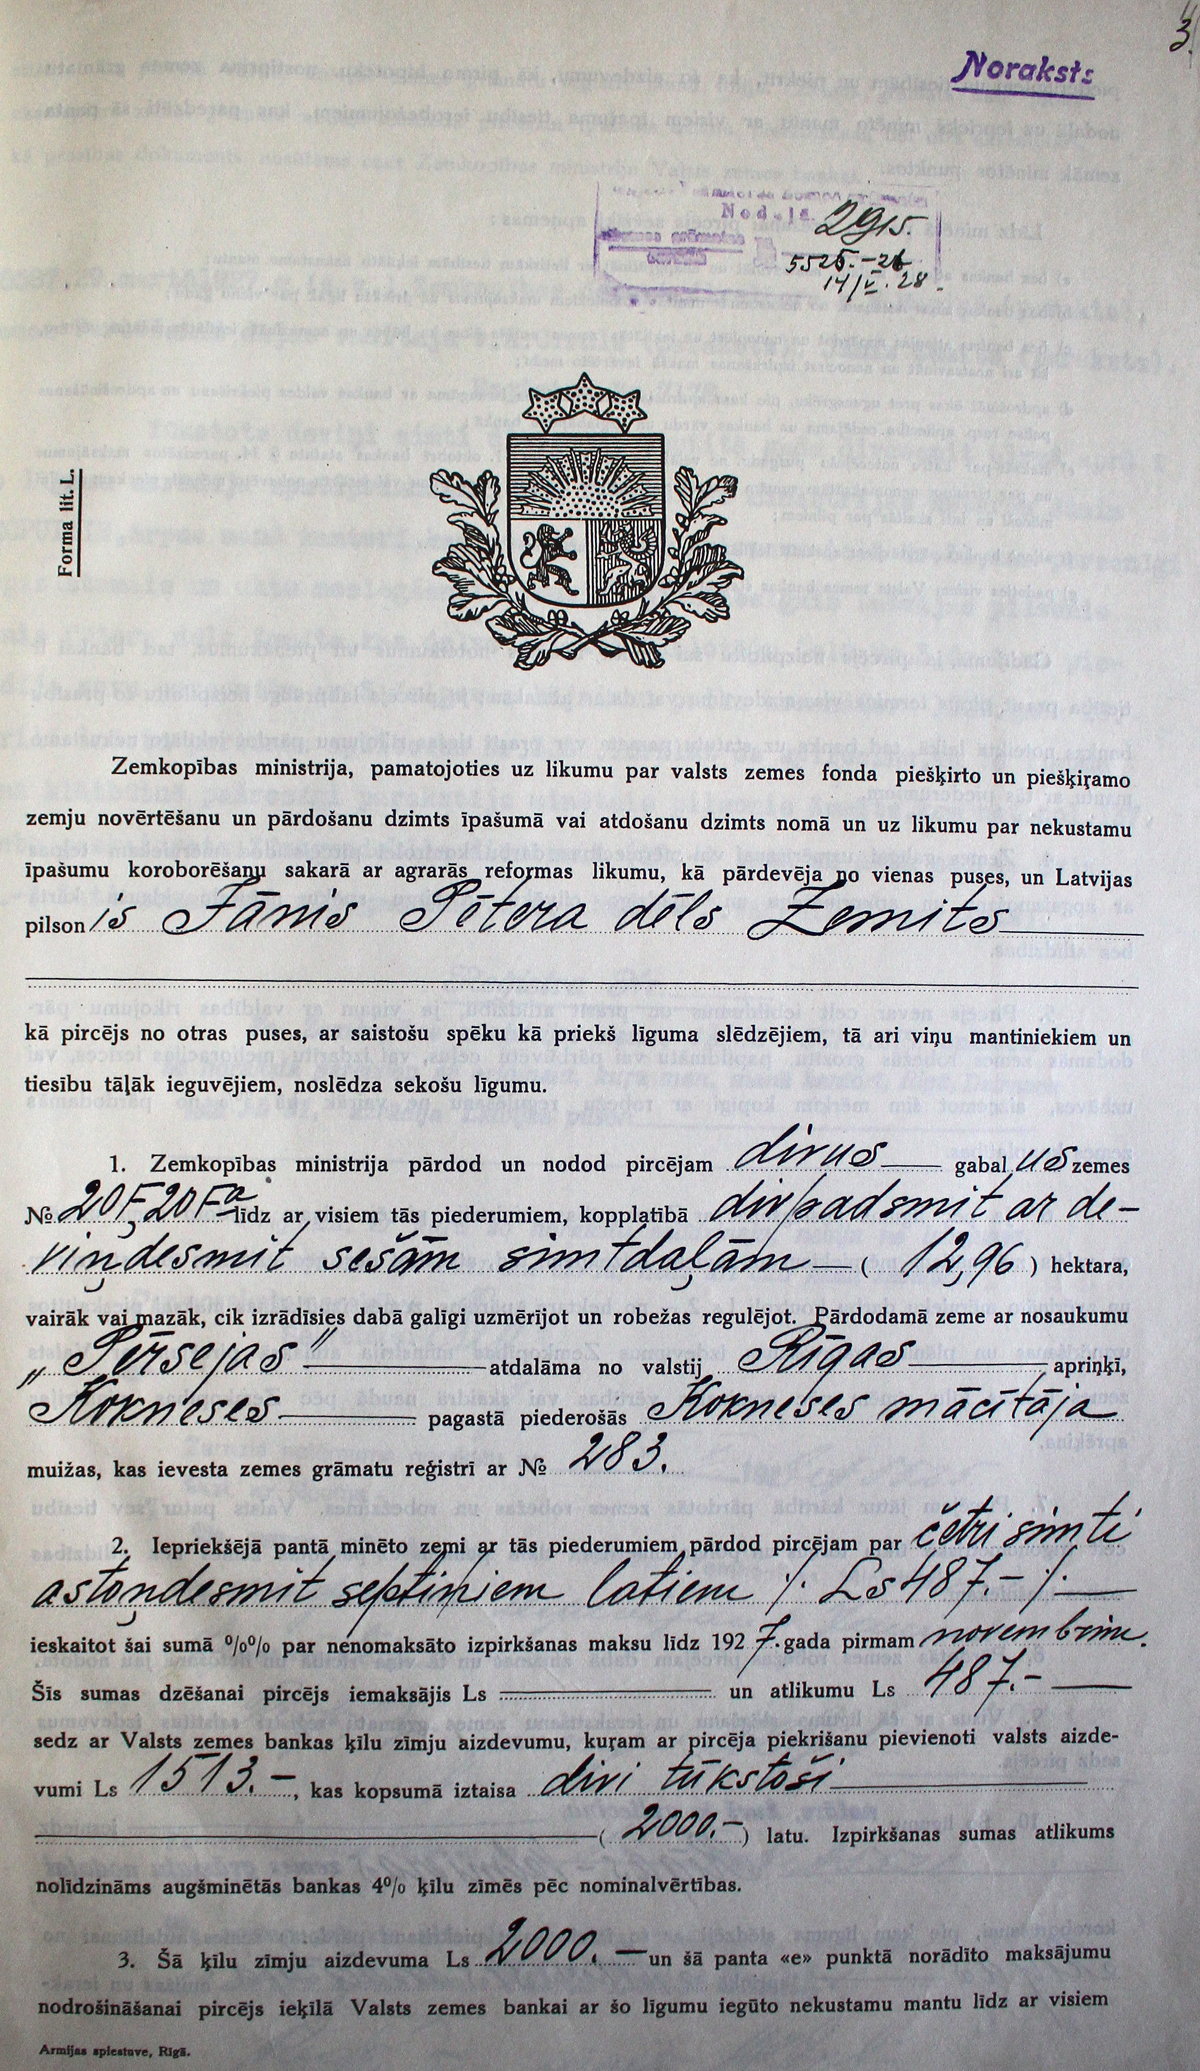 3.
Noraksts
Nodaļa.
2915.
5525.-26
14/V.28.
Forma lit. L.
Zemkopības ministrija, pamatojoties uz likumu par valsts zemes fonda piešķirto un piešķiŗamo
zemju novērtēšanu un pārdošanu dzimts īpašumā vai atdošanu dzimts nomā un uz likumu par nekustamu
īpašumu koroborēšanu sakarā ar agrarās reformas likumu, kā pārdevēja no vienas puses, un Latvijas
pilsonis Jānis Pētera dēls Zemits
kā pircējs no otras puses, ar saistošu spēku kā priekš līguma slēdzējiem, tā ari viņu mantiniekiem un
tiesību tāļāk ieguvējiem, noslēdza sekošu līgumu.
1. Zemkopības ministrija pārdod un nodod pircējam divus gabalus zemes
№ 20F, 20Fa līdz ar visiem tās piederumiem, kopplatībā divpadsmit ar de-
viņdesmit sešām simtdaļām — ( 12,96 ) hektara,
vairāk vai mazāk, cik izrādīsies dabā galīgi uzmērijot un robežas regulējot. Pārdodamā zeme ar nosaukumu
„Pērsejas" atdalāma no valstij Rīgas apriņķī,
Kokneses pagastā piederošās Kokneses mācītāja
muižas, kas ievesta zemes grāmatu reģistrī ar № 283.
2. Iepriekšējā pantā minēto zemi ar tās piederumiem pārdod pircējam par četri simti
astoņdesmit septiņiem latiem ./. Ls 487.- ./.
ieskaitot šai sumā %% par nenomaksāto izpirkšanas maksu līdz 1927. gada pirmam novembrim.
Šīs sumas dzēšanai pircējs iemaksājis Ls un atlikumu Ls 487.-
sedz ar Valsts zemes bankas ķīlu zīmju aizdevumu, kuŗam ar pircēja piekrišanu pievienoti valsts aizde-
vumi Ls 1513.-, kas kopsumā iztaisa divi tūkstoši
( 2000.- ) latu. Izpirkšanas sumas atlikums
nolīdzināms augšminētās bankas 4% ķīlu zīmēs pēc nominalvērtības.
3. Šā ķīlu zīmju aizdevuma Ls 2000.- un šā panta «e» punktā norādīto maksājumu
nodrošināšanai pircējs ieķīlā Valsts zemes bankai ar šo līgumu iegūto nekustamu mantu līdz ar visiem
Armijas spiestuve, Rīgā.